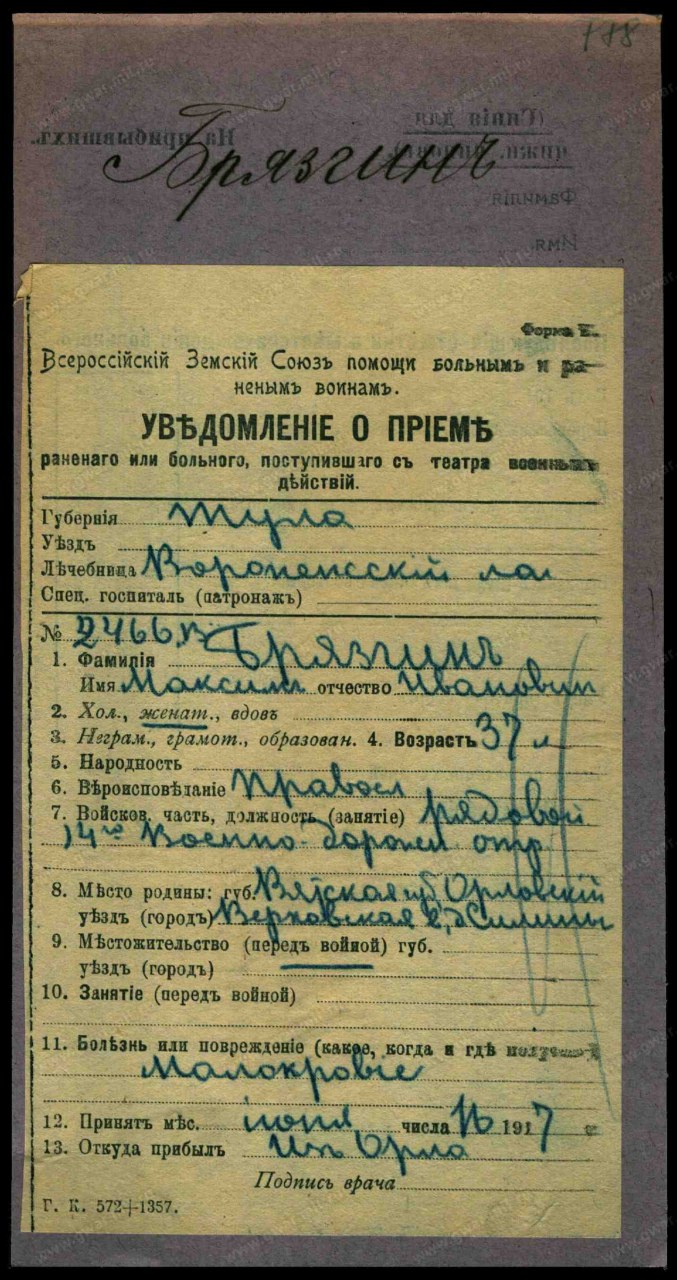 188
Брязгинъ
Форма
Всероссійскій Земскій Союзъ помощи больнымъ и ра-
ненымъ воинамъ.
УВѢДОМЛЕНІЕ О ПРІЕМѢ
раненаго или больного, поступившаго съ театра военныхъ
дѣйствій.
Губернія Тула
Уѣздъ
Лѣчебница
Спец. госпиталь (патронажъ)
№ 2466
1. Фамилія Брязгинъ
Имя Максим отчество Иванович
2. Хол., женат., вдовъ
3. Неграм., грамот., образован. 4. Возрастъ 37 л
5. Народность
6. Вѣроисповѣданіе Правосл
7. Войсков. часть, должность (занятіе) рядовой
14го Военно-дорожн отр
8. Мѣсто родины: губ. Вятская губ Орловскій
уѣздъ (городъ) Верховская в, д Жилины
9. Мѣстожительство (передъ войной) губ.
уѣздъ (городъ)
10. Занятіе (передъ войной)
11. Болѣзнь или поврежденіе (какое, когда и гдѣ получено)
Малокровіе
12. Принятъ мѣс. іюня числа 16 1917 г
13. Откуда прибылъ Изъ Орла
Подпись врача
Г. К. 572+1357.